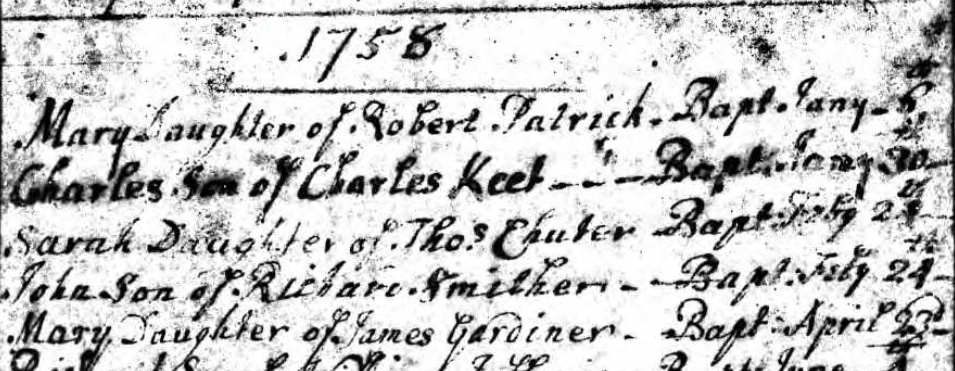 1758
Mary Daughter of Robert Patrick - Bapt. Jany - 8th
Charles Son of Charles Keet - - - Bapt. Jany 30th
Sarah Daughter of Thos. Chuter Bapt. Feby
John Son of Richard Smither - - Bapt. Feby 24th
Mary Daughter of James Gardiner - Bapt. April 23d
Bapt. June